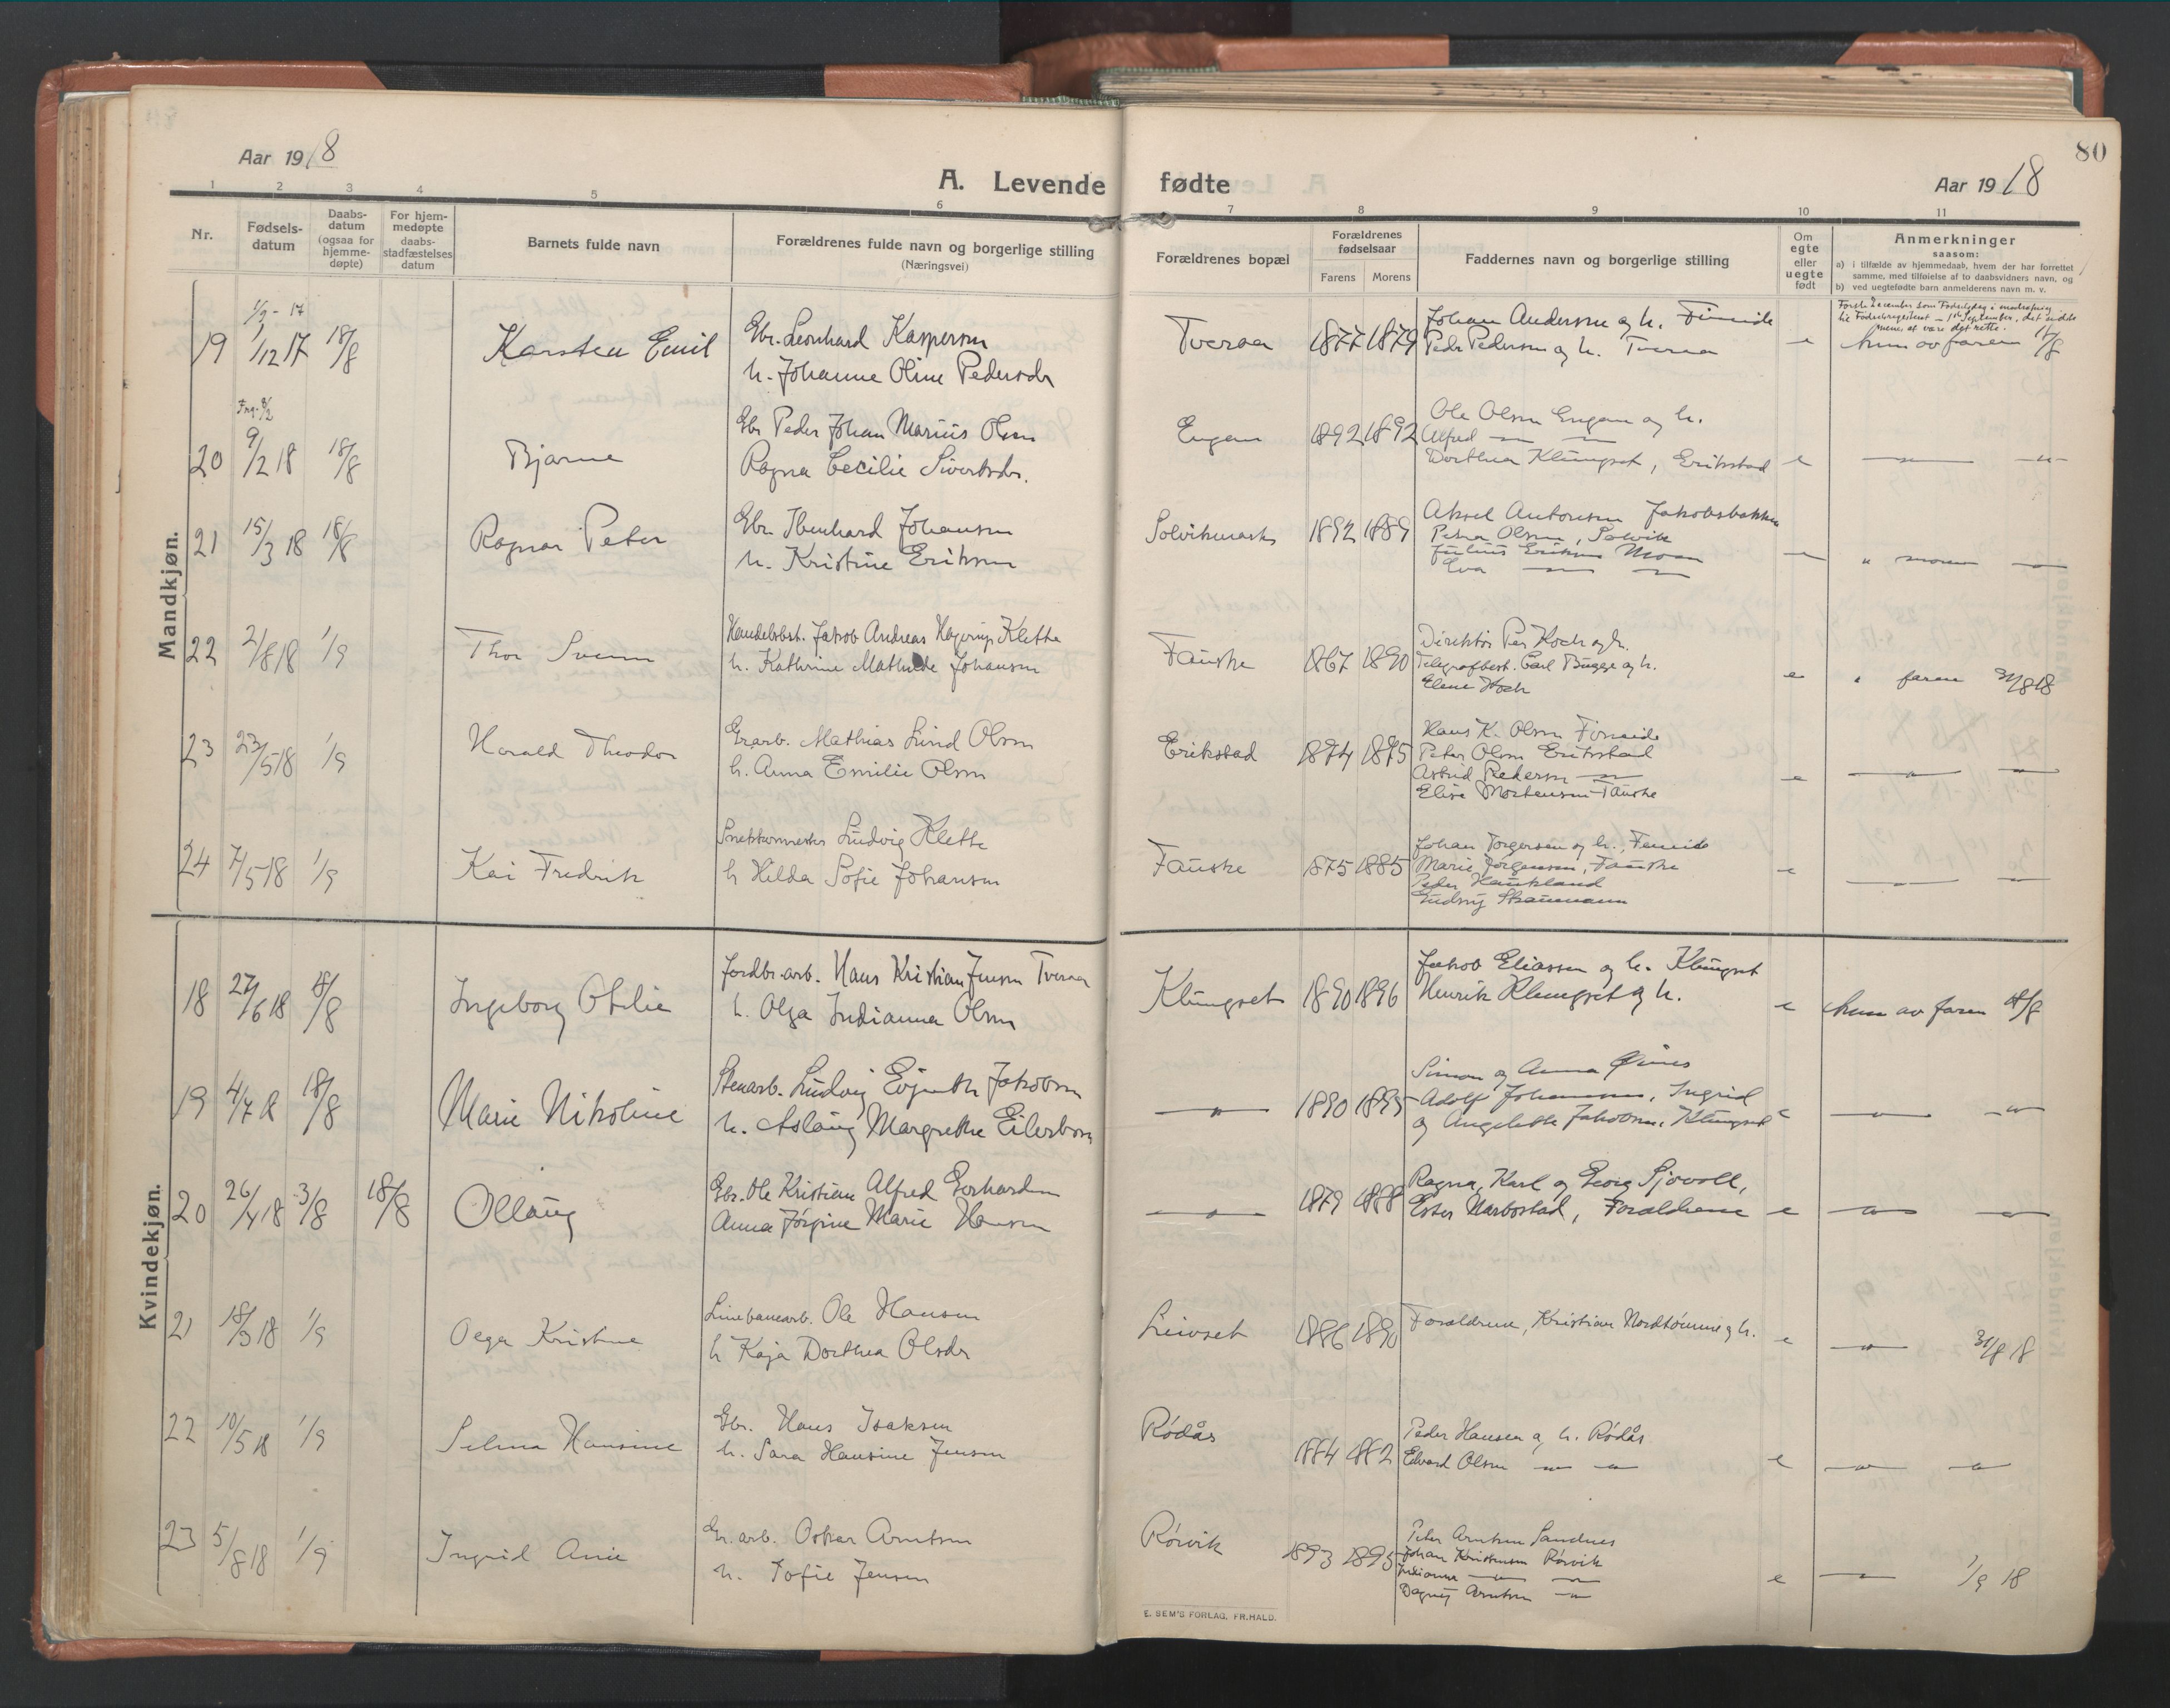 Aar 1918
A. Levende fødte
Aar 1918
80
1 2 3 4 5 6 7 8 9 10 11
Nr.
Fødsels-
datum
Daabs-
datum
(ogsaa for
hjemme-
døpte)
For hjem-
medøpte
daabs-
stadfæstelses
datum
Barnets fulde navn
Forældrenes fulde navn og borgerlige stilling
(Næringsvei)
Forældrenes bopæl
Forældrenes
fødselsaar
Farens Morens
Faddernes navn og borgerlige stilling
Om
egte
eller
uegte
født
Anmerkninger
saasom:
a) i tilfælde av hjemmedaab, hvem der har forrettet
samme, med tilføielse af to daabsvidners navn, og
b) ved uegtefødte barn anmelderens navn m. v.
Mandkjøn.
1/9 - 17
19 1/12 17 18/8 Karsten Emil
Gbr. Leonhard Kaspersen
h. Johanne Oline Pedersdr
Tveraa 1877 1879
Johan Andersen og h. Finneide
Peder Pedersen og h. Tveraa
e
av faren
20 9/2 18 18/8 Bjarne
Gbr Peder Johan Marius Olsen
Ragna Cecilie Sivertsdr.
Engan 1892 1892
Ole Olsen Engan og h.
Alfred — —
Dorthea Klungset, Erikstad
e — " — — " —
21 15/3 18 18/8 Ragnar Peter
Gbr. Ibenhard Johansen
h. Kristine Eriksen
Solvikmark 1892 1889
Aksel Antonsen Jakobsbakken
Petra Olsen, Solvik
Julius Eriksen Moen
Eva — —
" moren — " —
22 2/8 18 1/9 Thor Svenn
Handelsbst. Jakob Andreas Hagerup Klette
h. Kathrine Mathilde Johansen
Fauske 1867 1890
Direktør Per Koch og h.
Telegrafbest. Carl Bugge og h.
Elene Koch
e " faren 31/8 18
23 23/5 18 1/9 Harald Theodor
Grarb. Mathias Lund Olsen
h. Anna Emilie Olsen
Erikstad 1874 1875
Hans K. Olsen Finneide
Peter Olsen Erikstad
Astrid Pedersen — " —
Elise Mortensen Fauske
e — " — — " —
24 7/5 18 1/9 Kai Fredrik
Snekkermester Ludvig Klette
h Hilda Sofie Johansen
Fauske 1875 1885
Johan Torgersen og h., Finneide
Marie Jørgensen, Fauske
Peder Haukland
Ludvig Straumann
e — " — — " —
Kvindekjøn.
18 27/6 18 18/8 Ingeborg Otilie
Jordbr.arb. Hans Kristian Jensen Tveraa
h. Olga Indianna Olsen
Klungset 1890 1896
Jakob Eliassen og h. Klungset
Henrik Klungset og h.
e av faren
19 4/7 18 18/8 Marie Nikoline
Stenarb. Ludvig Evjenth Jakobsen
h. Aslaug Margrethe Eilertsen
— " — 1890 1895
Simon og Anna Øines
Adolf Johansen, Ingrid
og Angelette Jakobsen, Klungset
e — " — — " —
20 26/4 18 3/8 18/8 Ollaug
Gbr. Ole Kristian Alfred Gerhardsen
Anna Jørgine Marie Hansen
— " — 1879 1888
Ragna, Karl og Georg Sjøvoll,
Ester Narbostad, Forældrene
e — " — — " —
21 18/3 18 1/9 Olga Kristine
Linebanearb. Ole Hansen
h Kaja Dorthea Olsdr
Leivset 1886 1890
Forældrene, Kristian Nordtømme og h.
e — " — 31/8 18
22 10/5 18 1/9 Selma Hansine
Gbr. Hans Isaksen
h. Sara Hansine Jensen
Rødås 1884 1882
Peder Hansen og h. Rødås
Edvard Olsen — " — — " —
e — " — — " —
23 5/8 18 1/9 Ingrid Anie
Gr. arb. Oskar Arntsen
h. Sofie Jensen
Rørvik 1893 1895
Peter Arntsen Sandnes
Johan Kristensen Rørvik
Indianna — " — — " —
Dagny Arntsen — " —
e — " — 1/9 18
E. SEM'S FORLAG, FR.HALD.